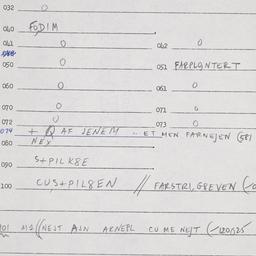 032 0
040 FODIM
041 0 042 0
050 0 051 FARPLANTERT
060 0 061 0
070 0 071 0
072 0 073 0
074 + Q AF JENEM .. ET MEN FARNEJEN (581
080 NEX
090 S+PILK8E
100 CUS+PIL8EN // FARSTRI, G8EVEN
NEJT AJN AKNEPL CU ME NEJT